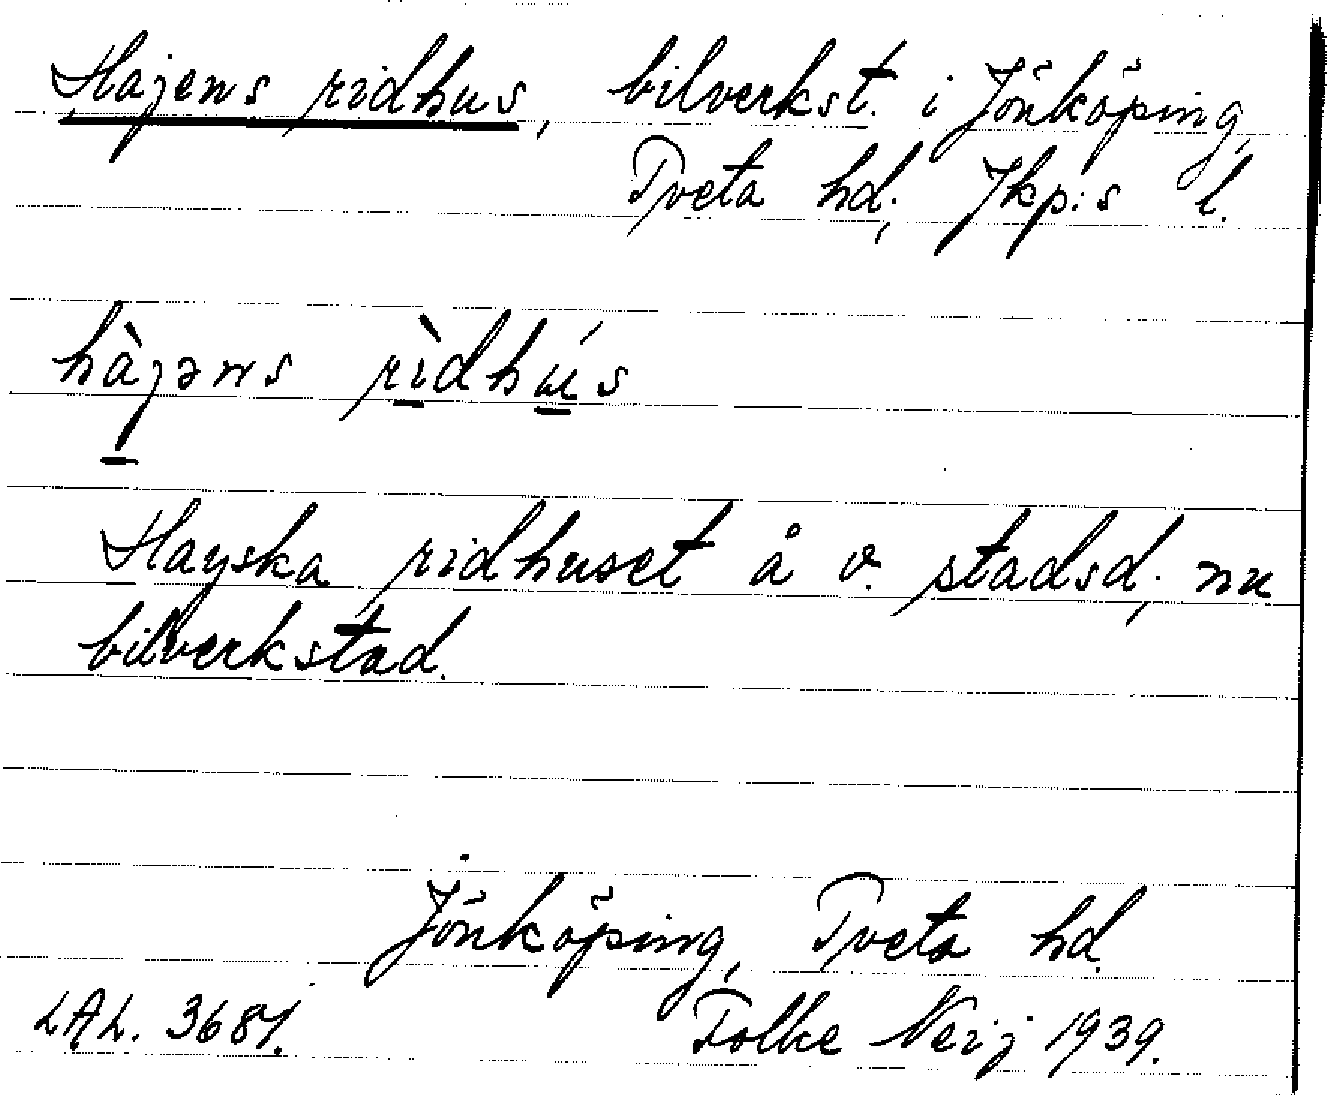 Hajens ridhus, bilverkst. i Jönköping,
Tveta hd., Jkp:s l.
hàjəns rìdhús
Hayska ridhuset å v. stadsd., nu
bilverkstad.
Jönköping, Tveta hd.
LAL. 3687. Folke Neij 1939.